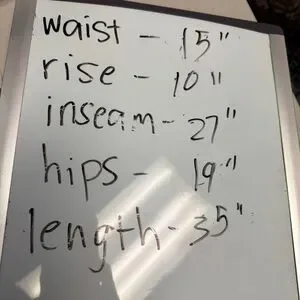 waist - 15"
rise - 10"
inseam - 27"
hips - 19"
length - 35"